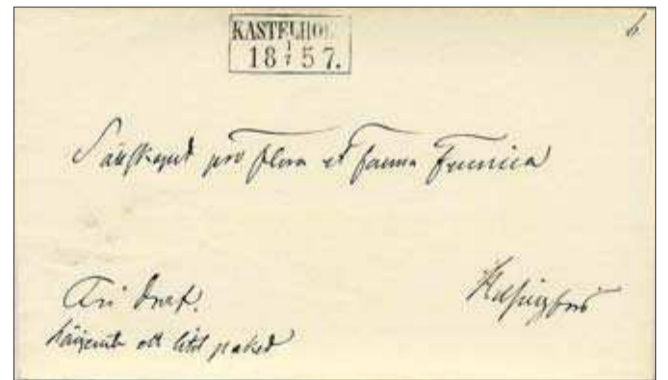 KASTELHO
18 1/7 57.
6.
Sällskapet pro flora et fauna Fennica
Helsingfors
Fri
härjemte ett litet paket